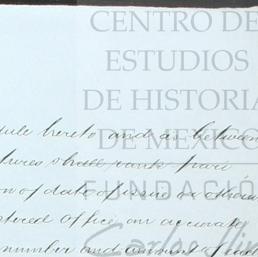 CENTRO DE
ESTUDIOS
DE HISTORIA
DE MÉXICO
FUNDACIÓN
Carlos Slim
dule hereto and as between
tures shall rank pari
on of date of issue or otherwise
stered Office an accurate
number and amount of